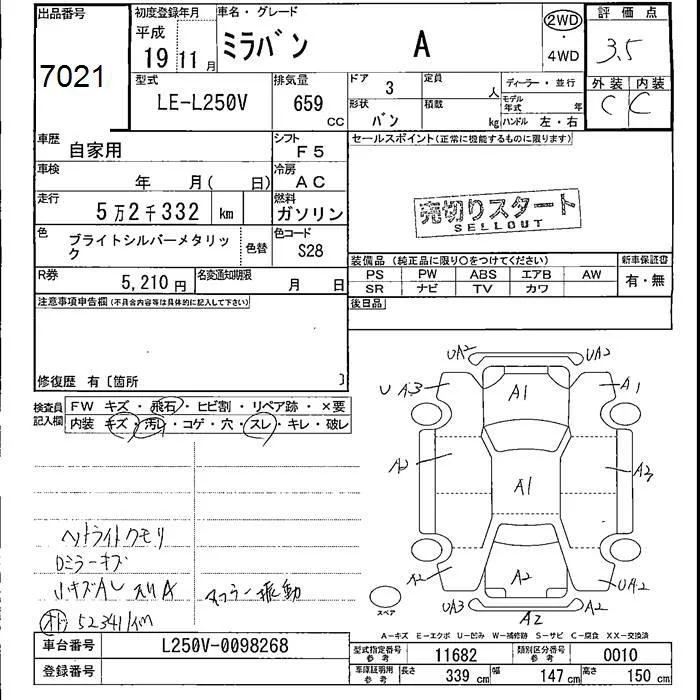 出品番号 初度登録年月 車名・グレード 評価点
7021 平成 19 11月 ミラバン A 2WD・4WD 3.5
型式 排気量 ドア 3 定員 人 ディーラー・並行 外装 内装
LE-L250V 659 CC 形状 バン 積載 kg モデル年式 年 ハンドル 左・右 C C
車歴 自家用 シフト F5 セールスポイント(正常に機能するものに限ります)
車検 年 月( 日) 冷房 AC
走行 5万2千332 km 燃料 ガソリン 売切りスタート
SELLOUT
色 ブライトシルバーメタリック 色替 色コード S28
装備品(純正品に限り○をつけてください) 新車保証書
PS PW ABS エアB AW 有・無
SR ナビ TV カワ
R券 5,210円 名変通知期限 月 日 後日品
注意事項申告欄(不具合内容等は具体的に記入して下さい)
修復歴 有〔箇所 〕
検査員記入欄 FW キズ・飛石・ヒビ割・リペア跡・×要
内装 キズ・汚レ・コゲ・穴・スレ・キレ・破レ
UA2 UA2
U A3 A1 A1
A2 A1 A3
A2 A2 UA2
UA3 A2 A2
スペア
ヘットライトクモリ
Dミラーキズ
小キズAL スリA マフラー振動
オド 52341km
A-キズ E-エクボ U-凹み W-補修跡 S-サビ C-腐食 XX-交換済
車台番号 L250V-0098268 型式指定番号 参考 11682 類別区分番号 参考 0010
登録番号 車庫証明用 参考 長さ 339 cm 幅 147 cm 高さ 150 cm